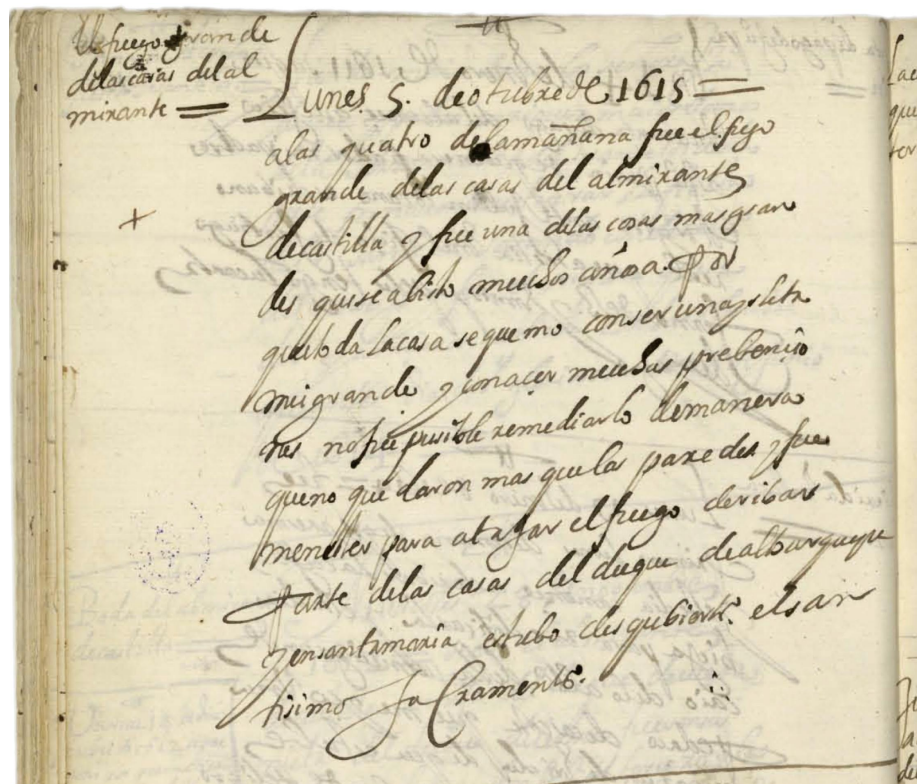 el fuego grande
delas casas del al
mirante =
Lunes 5. de otubre de 1615 =
alas quatro dela mañana fue el fuego
grande delas casas del almirante
decastilla y fue una delas cosas mas gran
des que se a bisto muchos años a. Por
que to da la casa se quemo con ser una
mui grande y con acer muchas prebencio
nes no fue pusible remediarlo demanera
que no que daron mas que las paredes y fue
menester para atajar el fuego deribar
Parte delas casas del duque de alburquque
y en santa maria estubo desqubierto el san
tisimo sa Cramento.